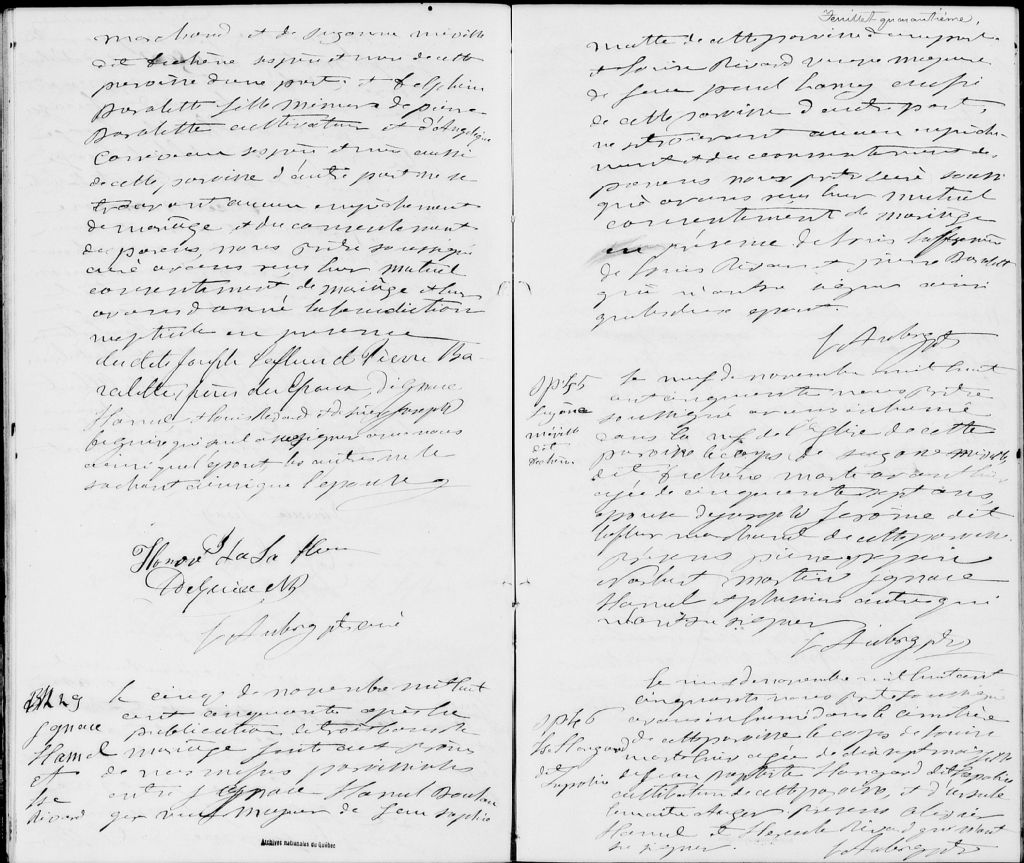 marchand et de Suzonne miville
dit Dechène ses père et mère de cette
paroisse d'une part; et Delphine
Baralette fille mineure de pierre
Baralette cultivateur et d'Angelique
ses père et mère aussi
de cette paroisse d'autre part ne se
trouvant aucun empêchement
de mariage et du consentement
des parens, nous prêtre soussigné
curé avons reçu leur mutuel
consentement de mariage et leur
avons donné la bénédiction
nuptiale en presence
du dit Joseph Lafleur et Pierre Ba-
ralette, pères des Epoux, d'ignace
Hamel, et louis Rivard et de Joseph
qui seul a su signer avec nous
ainsi que l'epoux les autres ne le
sachant ainsi que l'epouse
Honoré La fleur
Deguire NP
L Aubry ptre curé
M 29
Ignace
Hamel
et
Rivard
le cinq de novembre mil huit
cent cinquante après la
publication de trois bans de
mariage faite aux prones
de nos messes paroissiales
entre Ignace Hamel Boulan
ger veuf majeur de Jean baptiste
Archives nationales du Québec
Feuillet quarantième.
matte de cette paroisse d'une part
et louise Rivard veuve majeure
de feu paul hamel aussi
de cette paroisse d'autre part,
ne se trouvant aucun empêche
ment et du consentement des
parens nous prêtre curé souss
gné avons reçu leur mutuel
consentement de mariage
en présence de louis
de louis Rivard et pierre Baralett
qui n'ont su signer ainsi
que les dits epoux.
L Aubry ptr
Sp 45
Suzône
miville
dit
Dechène
le neuf de novembre mil huit
cent cinquante nous prêtre
soussigné avons inhumé
dans la nef de l'Eglise de cette
paroisse le corps de suzone miville
dit Dechene morte avant hier
agée de cinquante sept ans,
epouse de joseph Jerôme dit
lafleur marchand de cette paroisse.
Présens pierre
Norbert martin ignace
Hamel et plusieurs autres qui
n'ont su signer
L Aubry ptr
Sp 46
Hongard
dit
Lapolice
le neuf de novembre mil huit cent
cinquante nous prêtre soussigné
avons inhumé dans le cimetière
de cette paroisse le corps de louise
morte hier agée de dix sept mois fille
de jean baptiste Hongard dit Lapolice
cultivateur de cette paroisse, et d'ursule
lemaitre Auger Présens
Hamel et Rivard qui n'ont
su signer.
L Aubry ptr